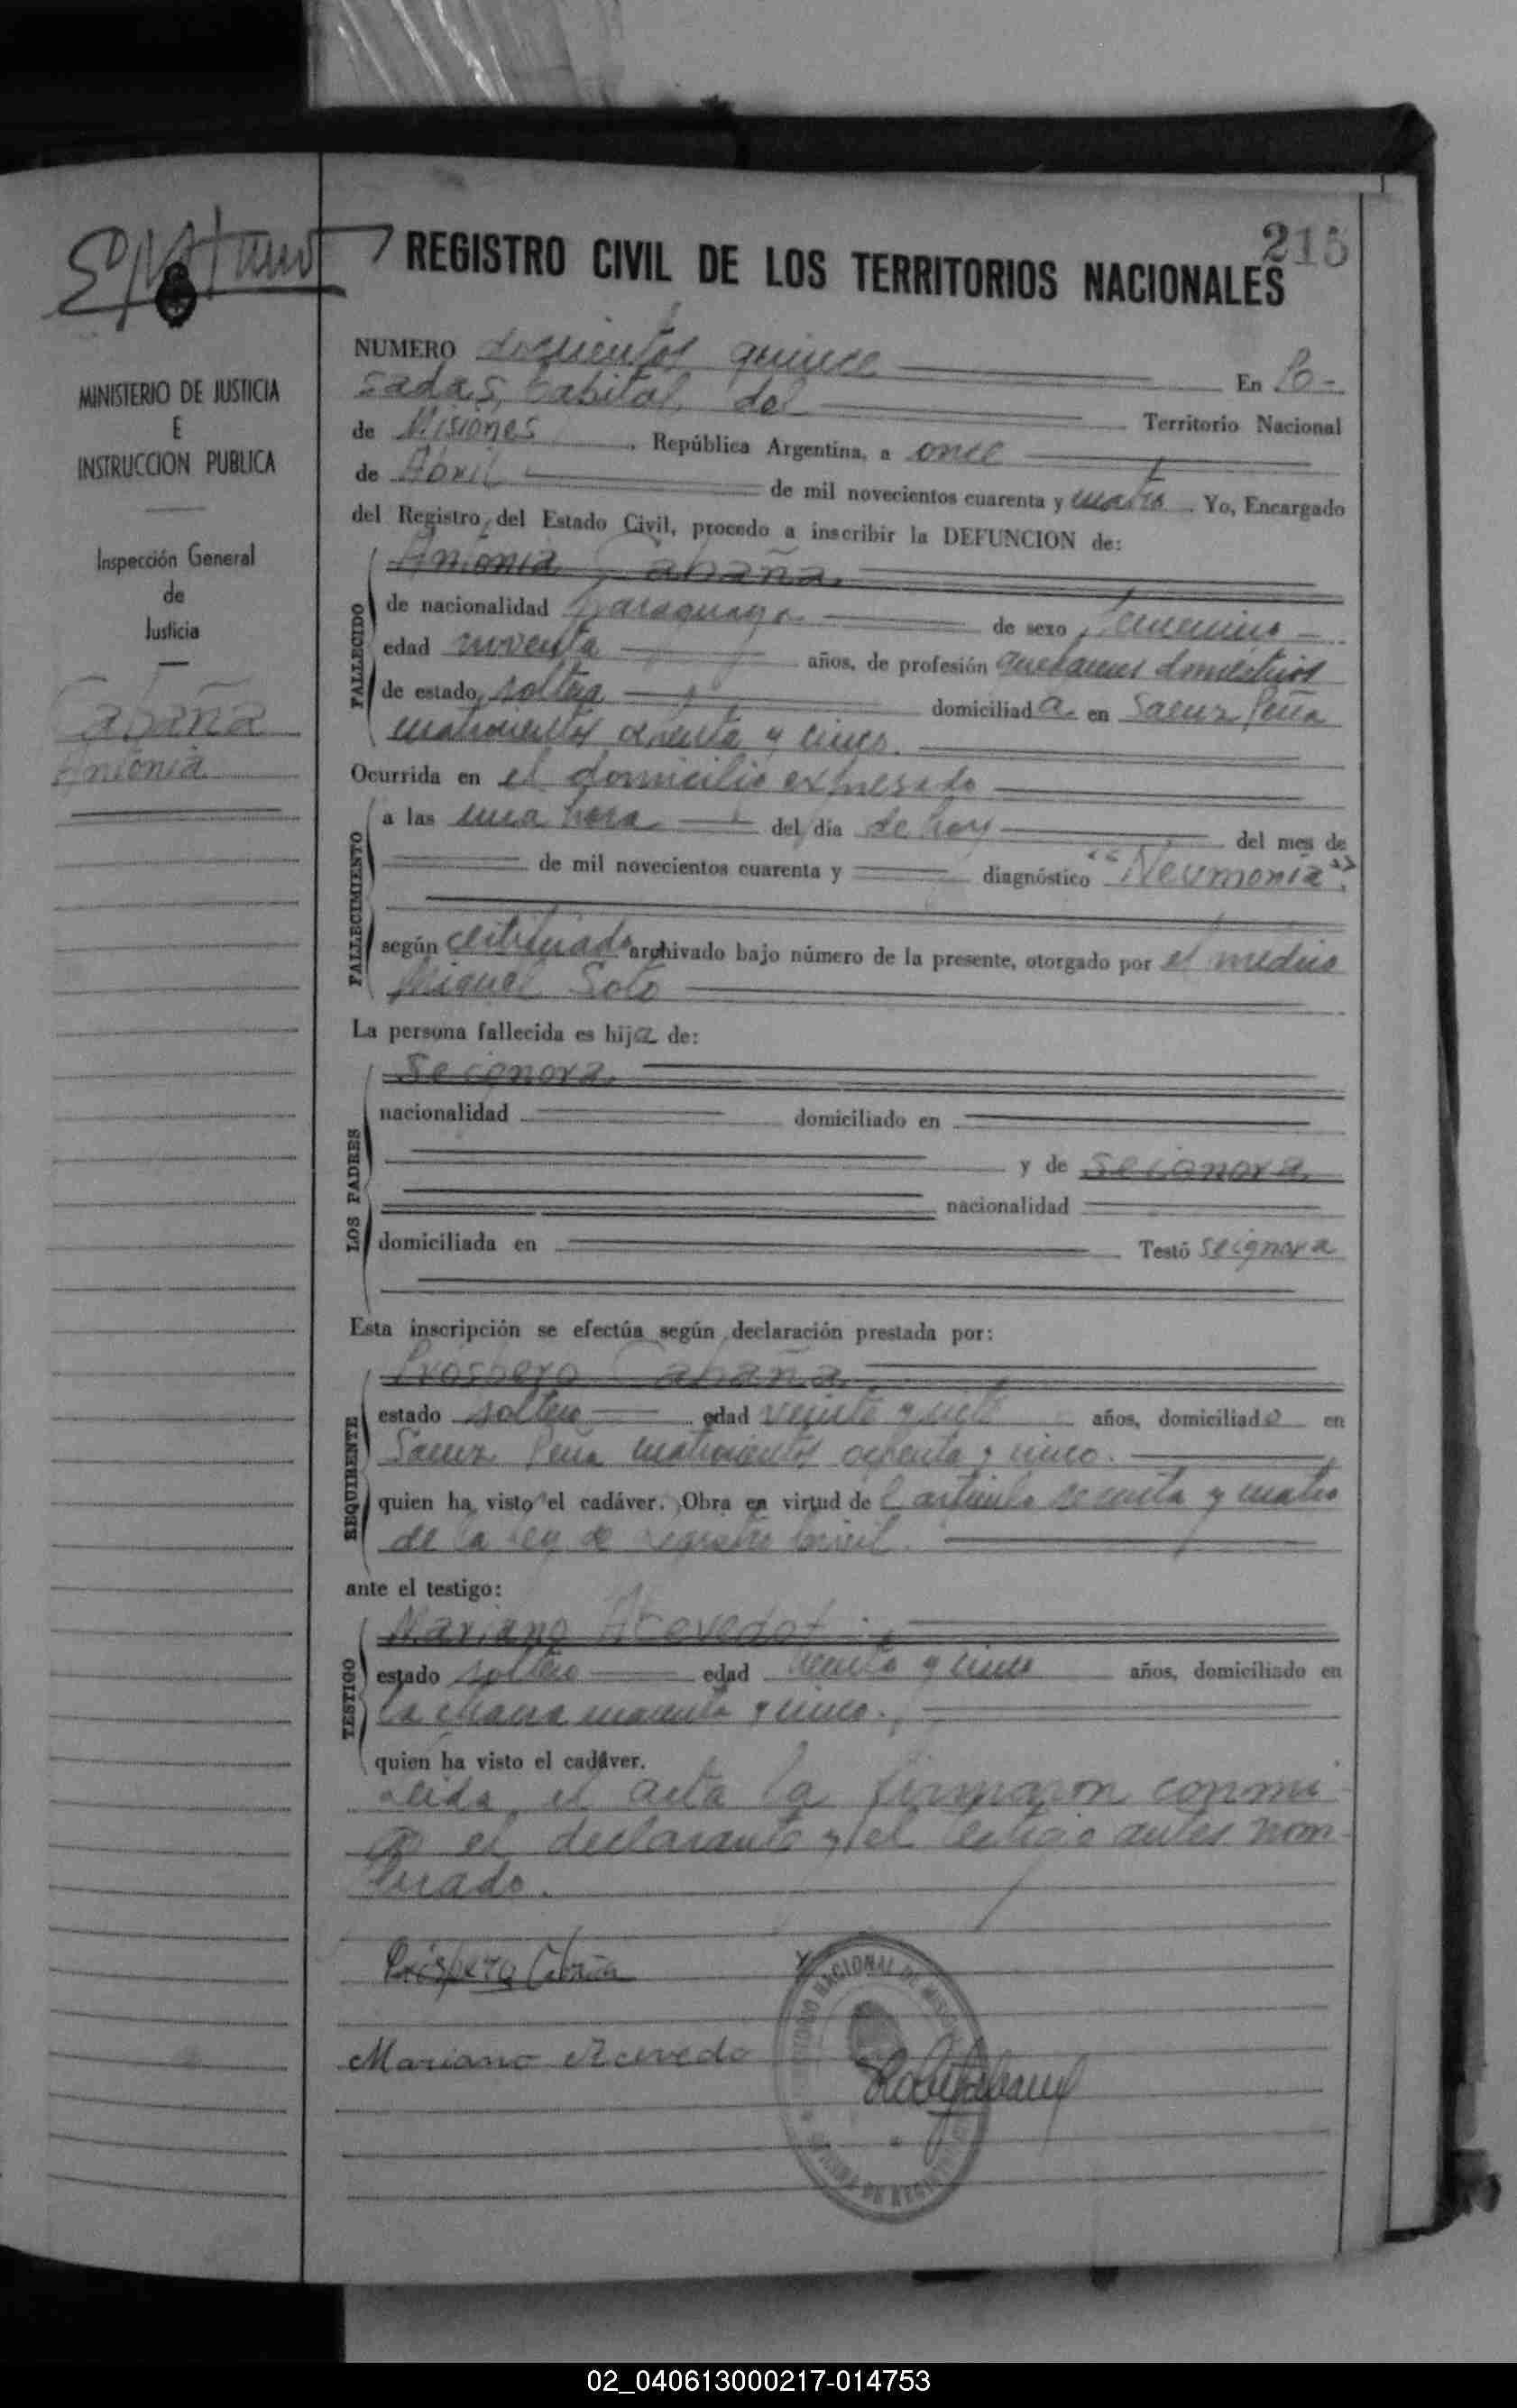 215
REGISTRO CIVIL DE LOS TERRITORIOS NACIONALES
MINISTERIO DE JUSTICIA
E
INSTRUCCION PUBLICA
Inspección General
de
Justicia
Cabaña
Antonia
NUMERO doscientos quince En Po-
sadas, Capital del Territorio Nacional
de Misiones, República Argentina, a once
de Abril de mil novecientos cuarenta y cuatro. Yo, Encargado
del Registro del Estado Civil, procedo a inscribir la DEFUNCION de:
Antonia Cabaña
FALLECIDO
de nacionalidad paraguaya de sexo femenino
edad noventa años, de profesión quehaceres domésticos
de estado soltera domiciliada en Saenz Peña
cuatrocientos ochenta y cinco.
Ocurrida en el domicilio expresado
FALLECIMIENTO
a las una hora del día de hoy del mes de
de mil novecientos cuarenta y diagnóstico "Neumonia".
según certificado archivado bajo número de la presente, otorgado por el medico
Miguel Soto
La persona fallecida es hija de:
LOS PADRES
Se ignora
nacionalidad domiciliado en
y de se ignora
nacionalidad
domiciliada en Testó se ignora
Esta inscripción se efectúa según declaración prestada por:
REQUIRENTE
Próspero Cabaña
estado soltero edad veinte y siete años, domiciliado en
Saenz Peña cuatrocientos ochenta y cinco.
quien ha visto el cadáver. Obra en virtud de l articulo sesenta y cuatro
de la ley de registro civil.
ante el testigo:
TESTIGO
Mariano Acevedo
estado soltero edad y cinco años, domiciliado en
la chacra cuarenta y cinco.
quien ha visto el cadáver.
Leida el acta la firmaron conmi-
go el declarante y el testigo antes nom-
brado.
Próspero Cabaña
Mariano Acevedo
02_040613000217-014753